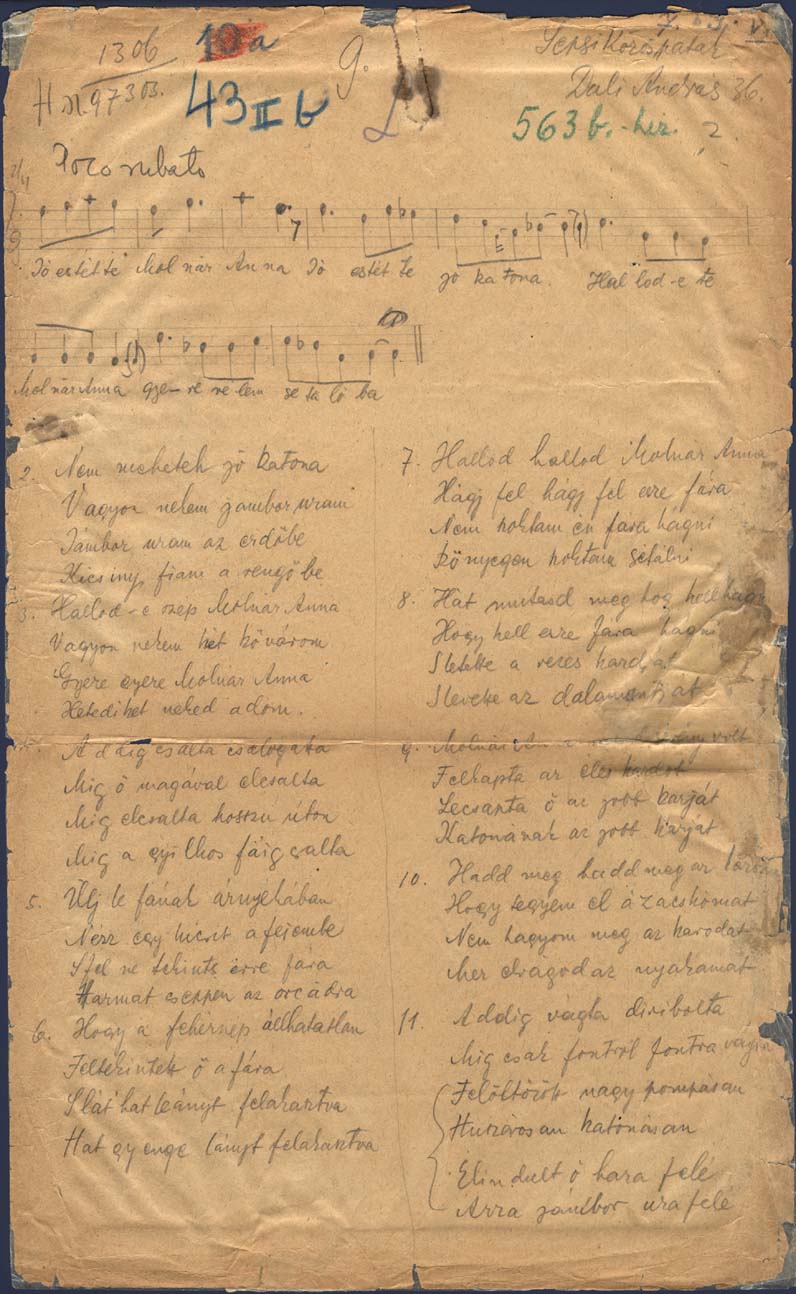 1306
10a
9.
Sepsikőröspatak
H n. 97303.
43 II b
Dali András 36.
563 b. - liz. 2.
Poco rubato
Jó estét te Molnár Anna Jó estét te jó katona. Hallod-e te
Molnár Anna gye-re ve lem se ta ló ba
2. Nem mehetek jó katona
Vagyon nekem jámbor uram
Jámbor uram az erdőbe
Kicsiny fiam a rengőbe
3. Hallod-e szep Molnár Anna
Vagyon nekem hét kővárom
Gyere gyere Molnár Anna
Hetediket neked adom.
Addig csalta csalogata
Mig ő magával elcsalta
Mig elcsalta hosszú úton
Mig a gyilkos fáig csalta
5. Ülj le fának árnyékában
Nézz egy kicsit a fejembe
S fel ne tekints erre fára
Harmat cseppen az orcádra
6. Hogy a fehérnép állhatatlan
Feltekintett ő a fára
S lát hat leányt felakasztva
Hat gyenge lányt felakasztva
7. Hallod hallod Molnár Anna
Hágj fel hágj fel erre fára
Nem noktam én fára hágni
Kőnyegen noktam sétálni
8. Hat mutasd meg hog kell hágni
Hogy kell erre fára hágni
S letette a rezes kardját
S levette az dalamantját
9. Molnár Anna volt
Felkapta az éles kardot
Lecsapta ő az jobb karját
Katonának az jobb karját
10. Hadd meg hadd meg az
Hogy tegyem el a zacskómat
Nem hagyom meg az karodat
Mer elvágod az nyakamat
11. Addig vágta diribolta
Mig csak fontról fontra vágta
Felöltözött nagy pompásan
Huszárosan katonásan
Elindult ő haza felé
Arra jámbor ura felé